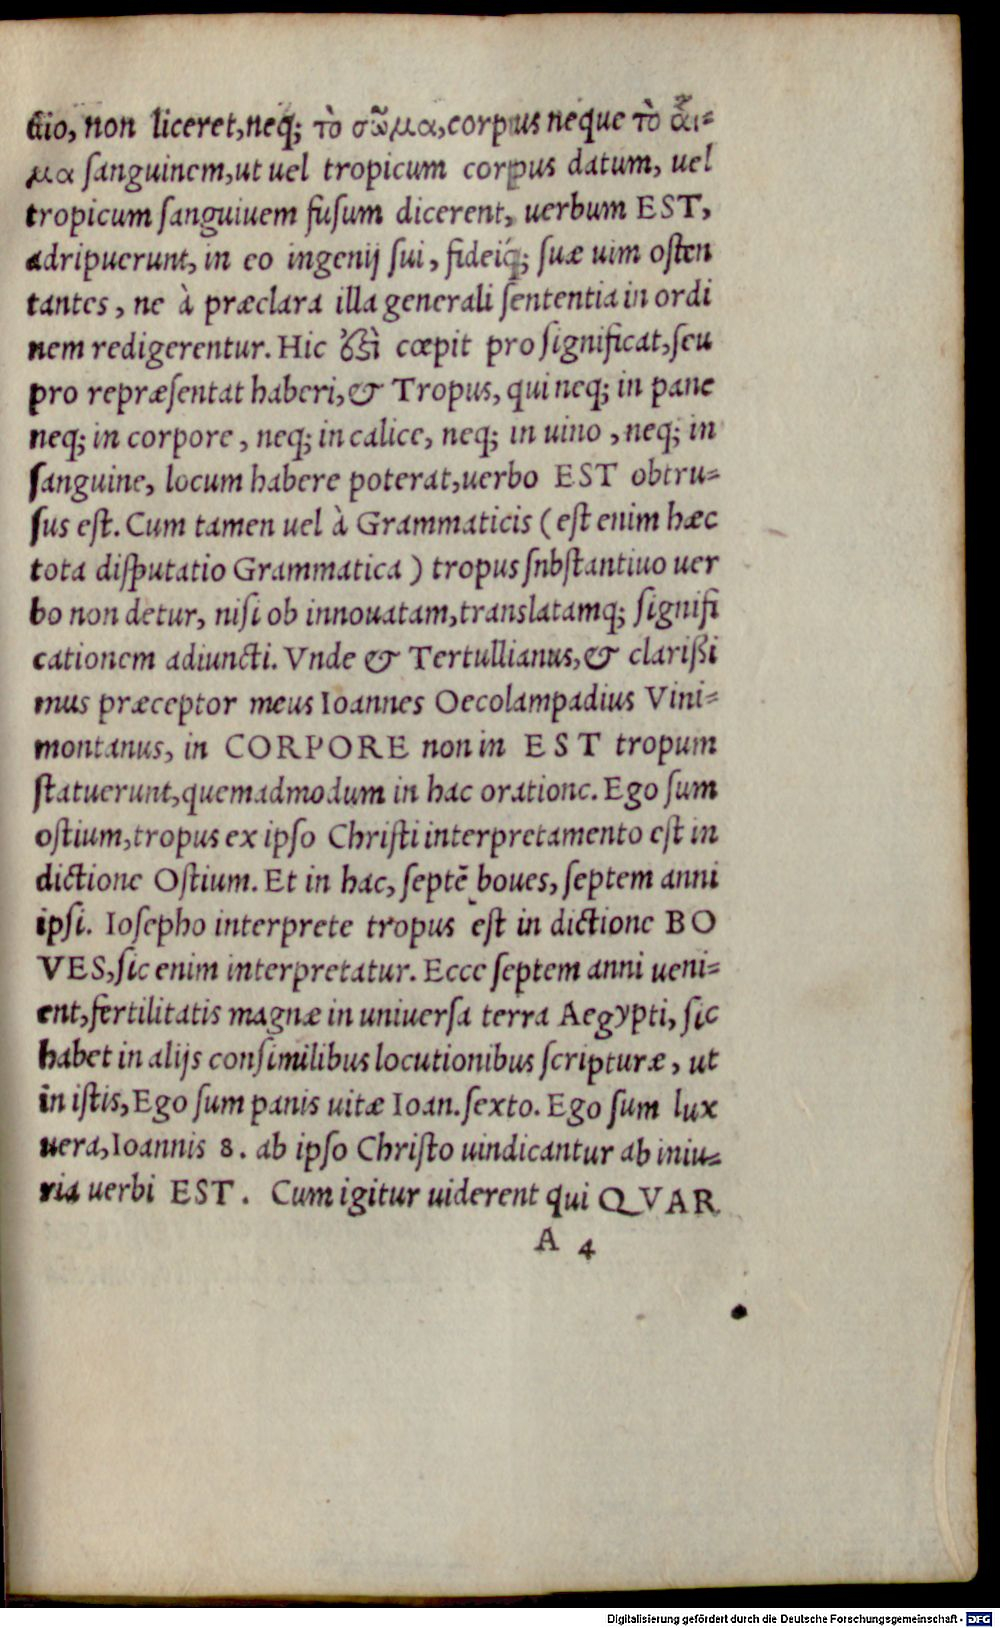 ctio, non liceret,neq; τὸ σῶμα,corpus neque τὸ αἷι-
μα ſanguinem,ut uel tropicum corpus datum, uel
tropicum ſanguiuem fuſum dicerent, uerbum EST,
adripuerunt, in eo ingenij ſui, fideiq́; ſuæ uim oſten
tantes, ne à præclara illa generali ſententia in ordi
nem redigerentur. Hic ἐστὶ cœpit pro ſignificat,ſeu
pro repræſentat haberi,& Tropus, qui neq; in pane
neq; in corpore, neq; in calice, neq; in uino, neq; in
ſanguine, locum habere poterat,uerbo EST obtru-
ſus eſt. Cum tamen uel à Grammaticis (eſt enim hæc
tota diſputatio Grammatica) tropus ſnbſtantiuo uer
bo non detur, niſi ob innouatam,translatamq; ſignifi
cationem adiuncti. Vnde & Tertullianus,& clarißi
mus præceptor meus Ioannes Oecolampadius Vini-
montanus, in CORPORE non in EST tropum
ſtatuerunt,quemadmodum in hac oratione. Ego ſum
oſtium,tropus ex ipſo Chriſti interpretamento eſt in
dictione Oſtium. Et in hac, ſeptē boues, ſeptem anni
ipſi. Ioſepho interprete tropus eſt in dictione BO
VES,ſic enim interpretatur. Ecce ſeptem anni ueni-
ent,fertilitatis magnæ in uniuerſa terra Aegypti, ſic
habet in alijs conſimilibus locutionibus ſcripturæ, ut
in iſtis, Ego ſum panis uitæ Ioan.ſexto. Ego ſum lux
uera,Ioannis 8. ab ipſo Chriſto uindicantur ab iniu-
ria uerbi EST. Cum igitur uiderent qui QVAR
A 4
Digitalisierung gefördert durch die Deutsche Forschungsgemeinschaft - DFG